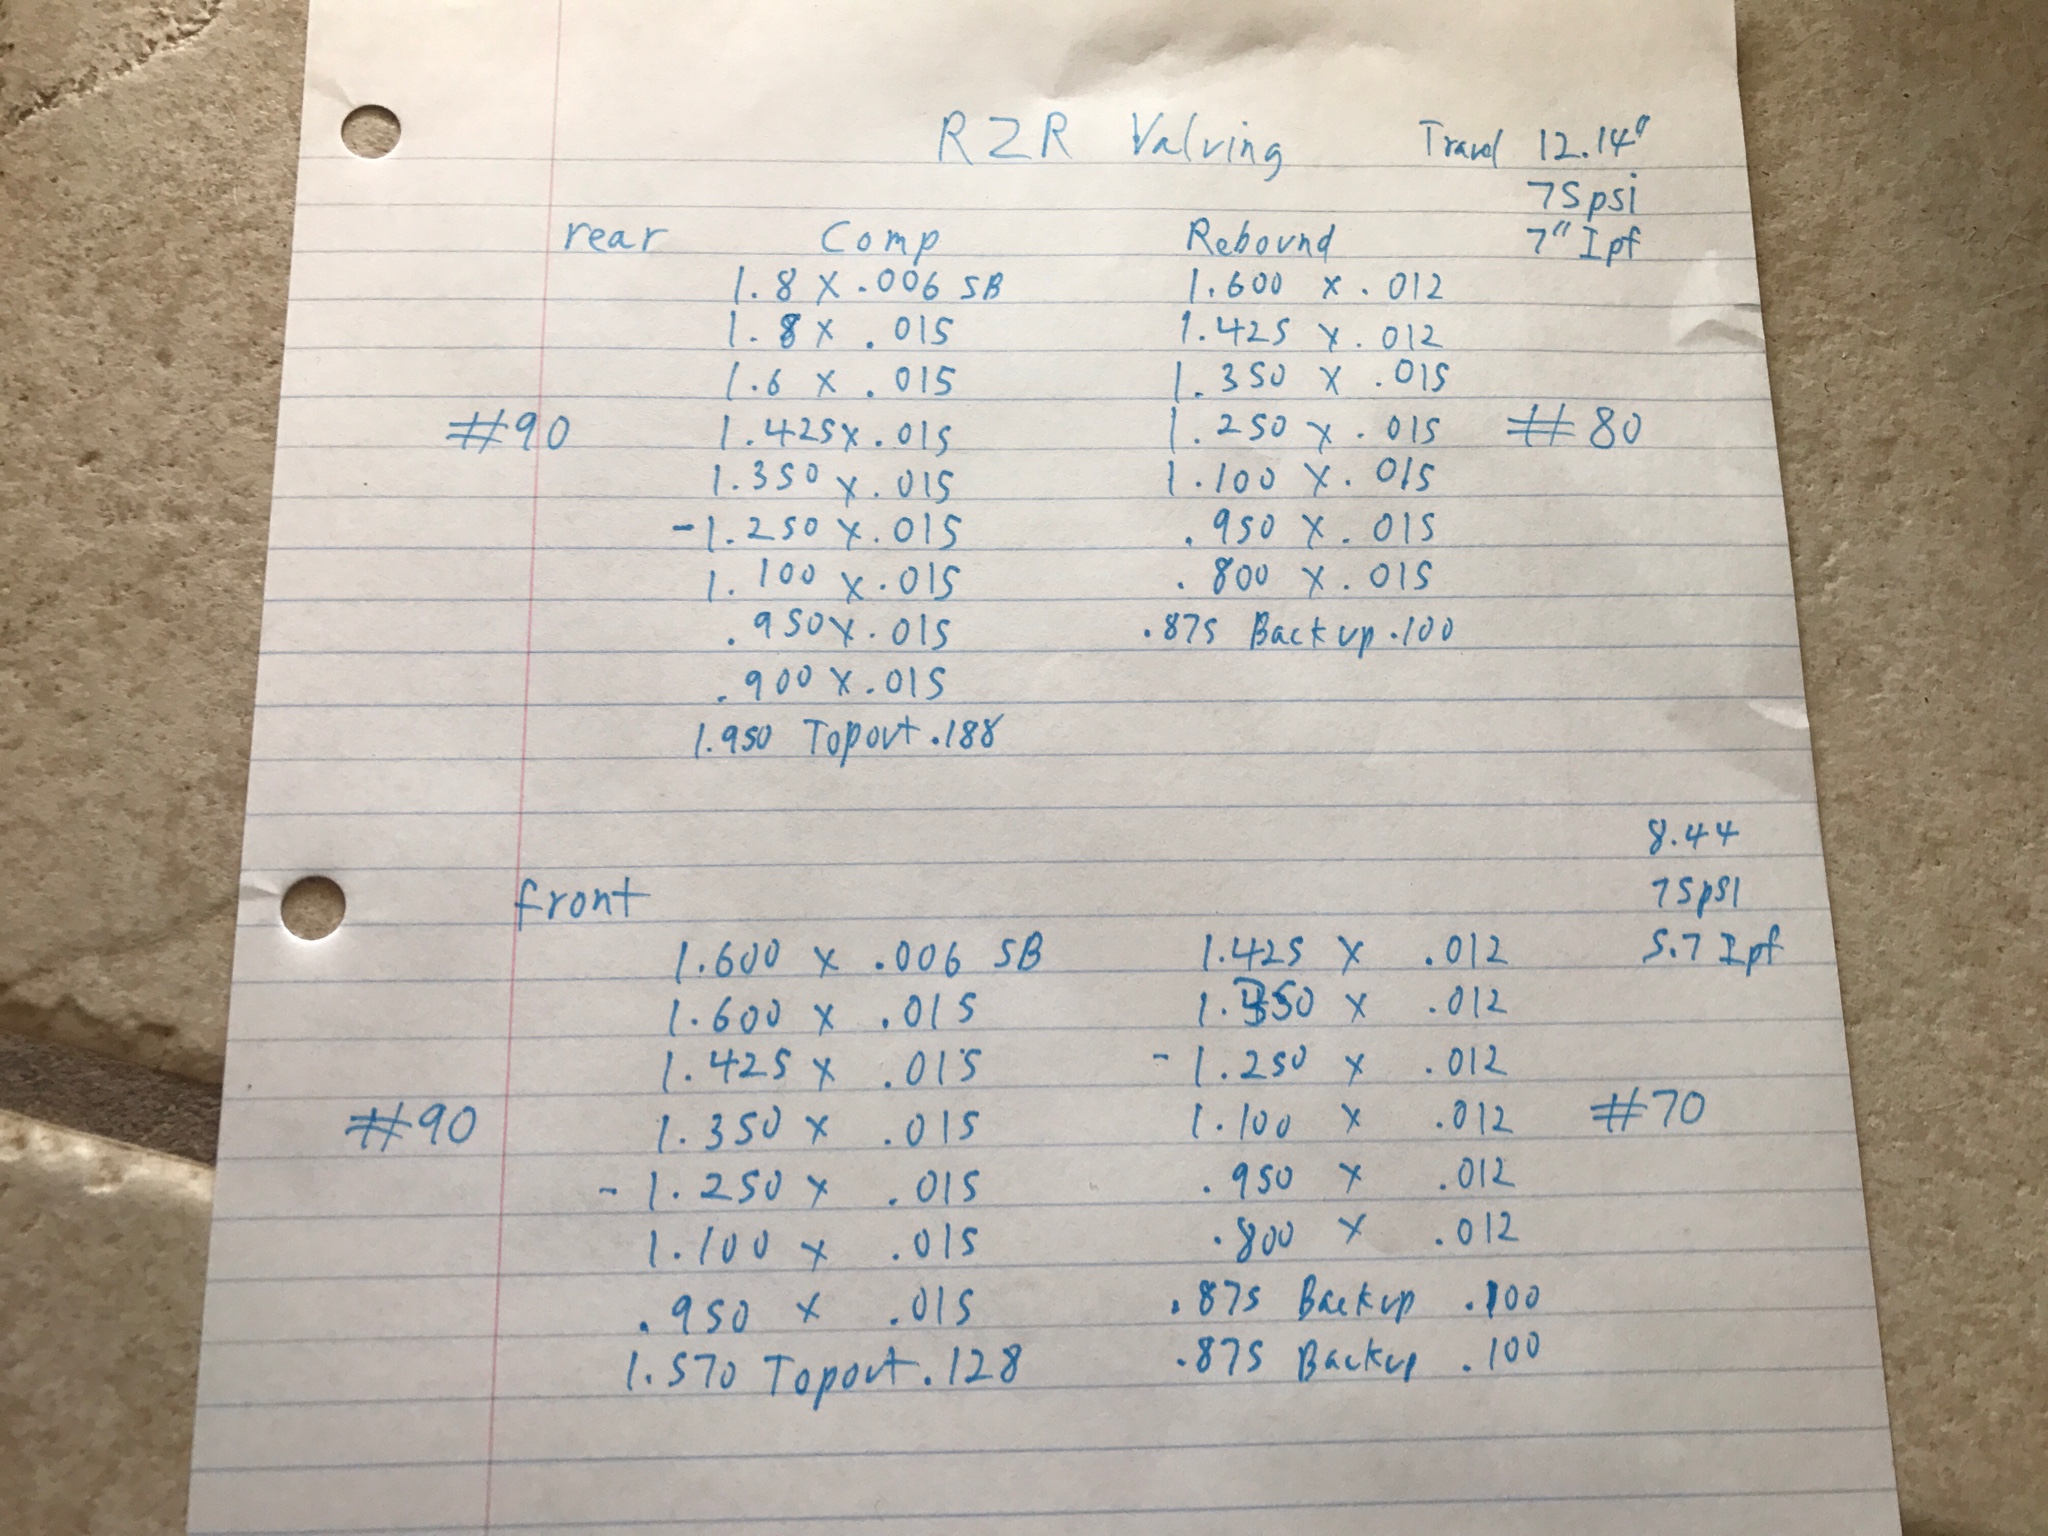 RZR Valving Travel 12.14"
75psi
rear Comp Rebound 7" Ipf
1.8 x .006 SB 1.600 x .012
1.8 x .015 1.425 x .012
1.6 x .015 1.350 x .015
#90 1.425 x .015 1.250 x .015 #80
1.350 x .015 1.100 x .015
-1.250 x .015 .950 x .015
1.100 x .015 .800 x .015
.950 x .015 .875 Backup .100
.900 x .015
1.950 Topout .188
8.44
front 75psi
1.600 x .006 SB 1.425 x .012 5.7 Ipf
1.600 x .015 1.350 x .012
1.425 x .015 -1.250 x .012
#90 1.350 x .015 1.100 x .012 #70
-1.250 x .015 .950 x .012
1.100 x .015 .800 x .012
.950 x .015 .875 Backup .100
1.570 Topout .128 .875 Backup .100